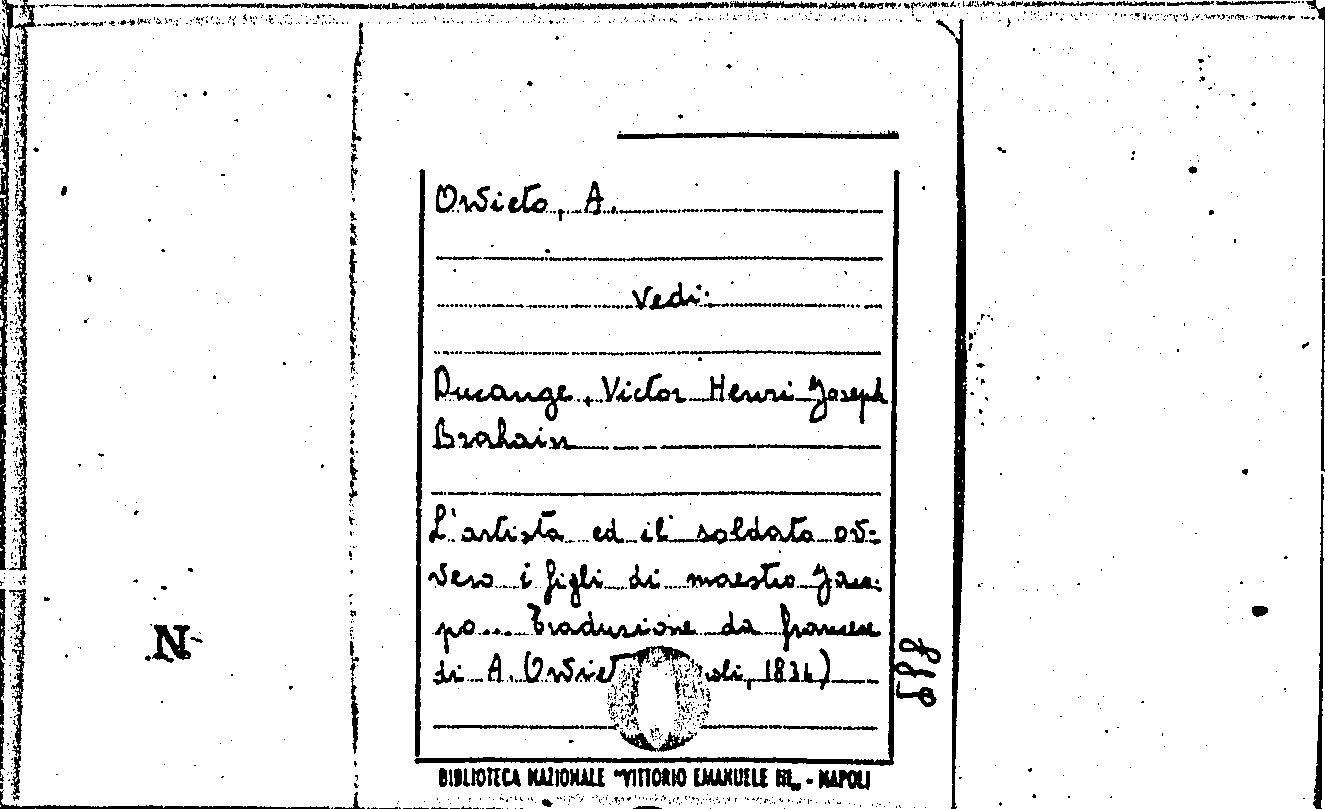 Orvieto, A.
Vedi:
Ducange, Victor Henri Joseph
Brahain
L'artista ed il soldato ov=
vero i figli di maestro
po... Traduzione da francese
di A. Orviet oli, 183
N
BIBLIOTECA NAZIONALE "VITTORIO EMANUELE III„ - NAPOLI